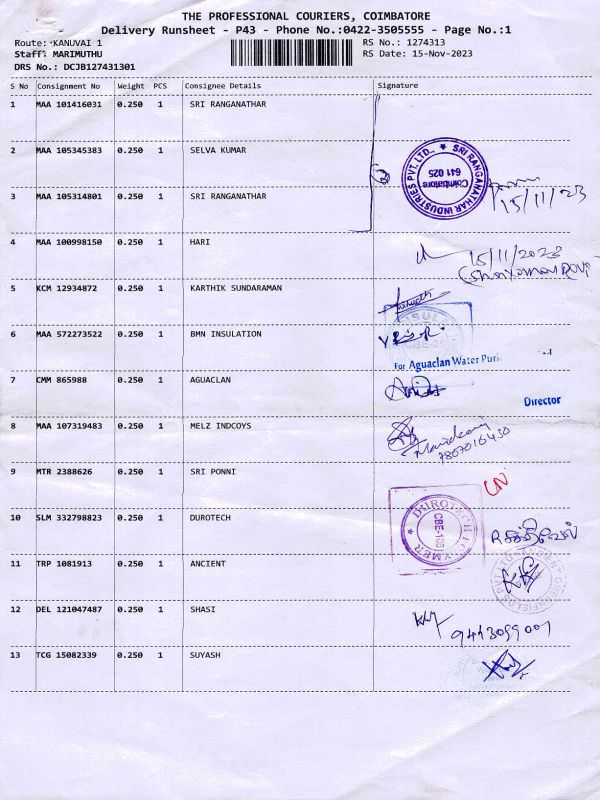 THE PROFESSIONAL COURIERS, COIMBATORE
Delivery Runsheet - P43 - Phone No.:0422-3505555 - Page No.:1
Route: KANUVAI 1
RS No.: 1274313
Staff: MARIMUTHU
RS Date: 15-Nov-2023
DRS No.: DCJB127431301
S No Consignment No Weight PCS Consignee Details Signature
1 MAA 101416031 0.250 1 SRI RANGANATHAR
2 MAA 105345383 0.250 1 SELVA KUMAR
SRI RANGANATHAR INDUSTRIES PVT. LTD.,
Coimbatore
641 025
15/11/23
3 MAA 105314801 0.250 1 SRI RANGANATHAR
4 MAA 100998150 0.250 1 HARI
15/11/2023
5 KCM 12934872 0.250 1 KARTHIK SUNDARAMAN
6 MAA 572273522 0.250 1 BMN INSULATION
for Aguaclan Water
7 CMM 865988 0.250 1 AGUACLAN
Director
8 MAA 107319483 0.250 1 MELZ INDCOYS
7867016430
9 MTR 2388626 0.250 1 SRI PONNI
10 SLM 332798823 0.250 1 DUROTECH
DUROTECH POLYMER
11 TRP 1081913 0.250 1 ANCIENT
12 DEL 121047487 0.250 1 SHASI
13 TCG 15082339 0.250 1 SUYASH